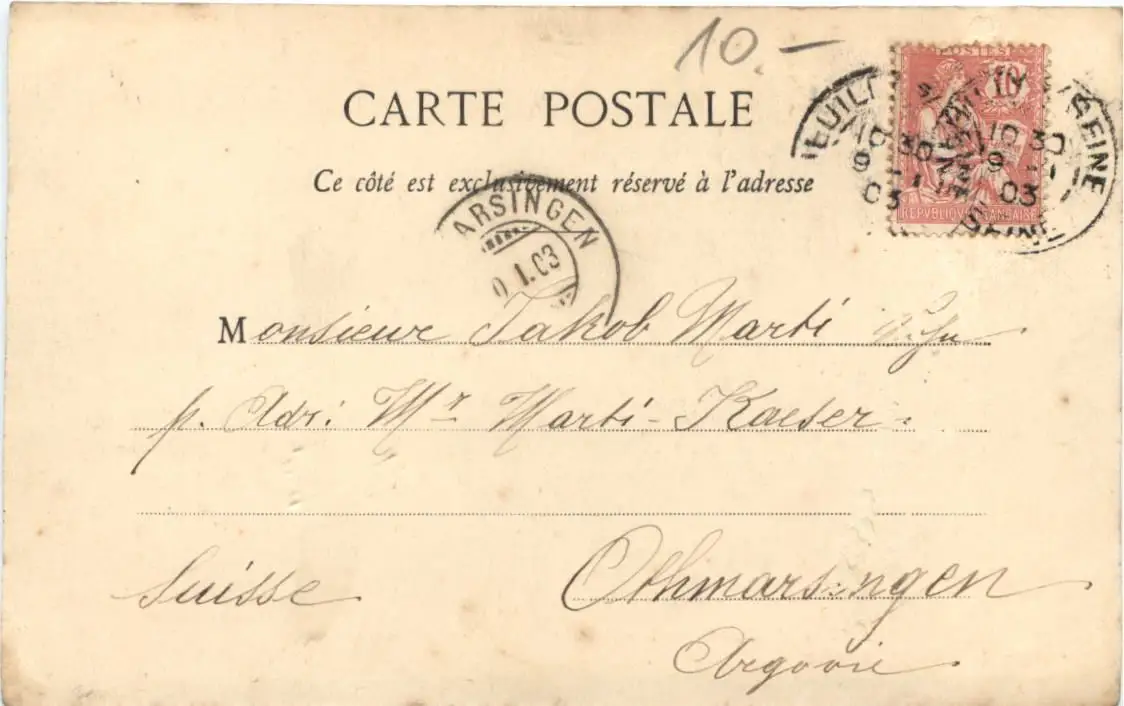 10.-
CARTE POSTALE
Ce côté est exclusivement réservé à l'adresse
POSTES
10
REPVBLIQVE FRANÇAISE
10 30
9 - 1
03
SEINE
10 30
9 - 1
03
SEINE
ARSINGEN
0 I.03
Monsieur Jakob Marti
p. Adr: Mr Marti-Kaeser
Suisse Othmarsingen
Argovie